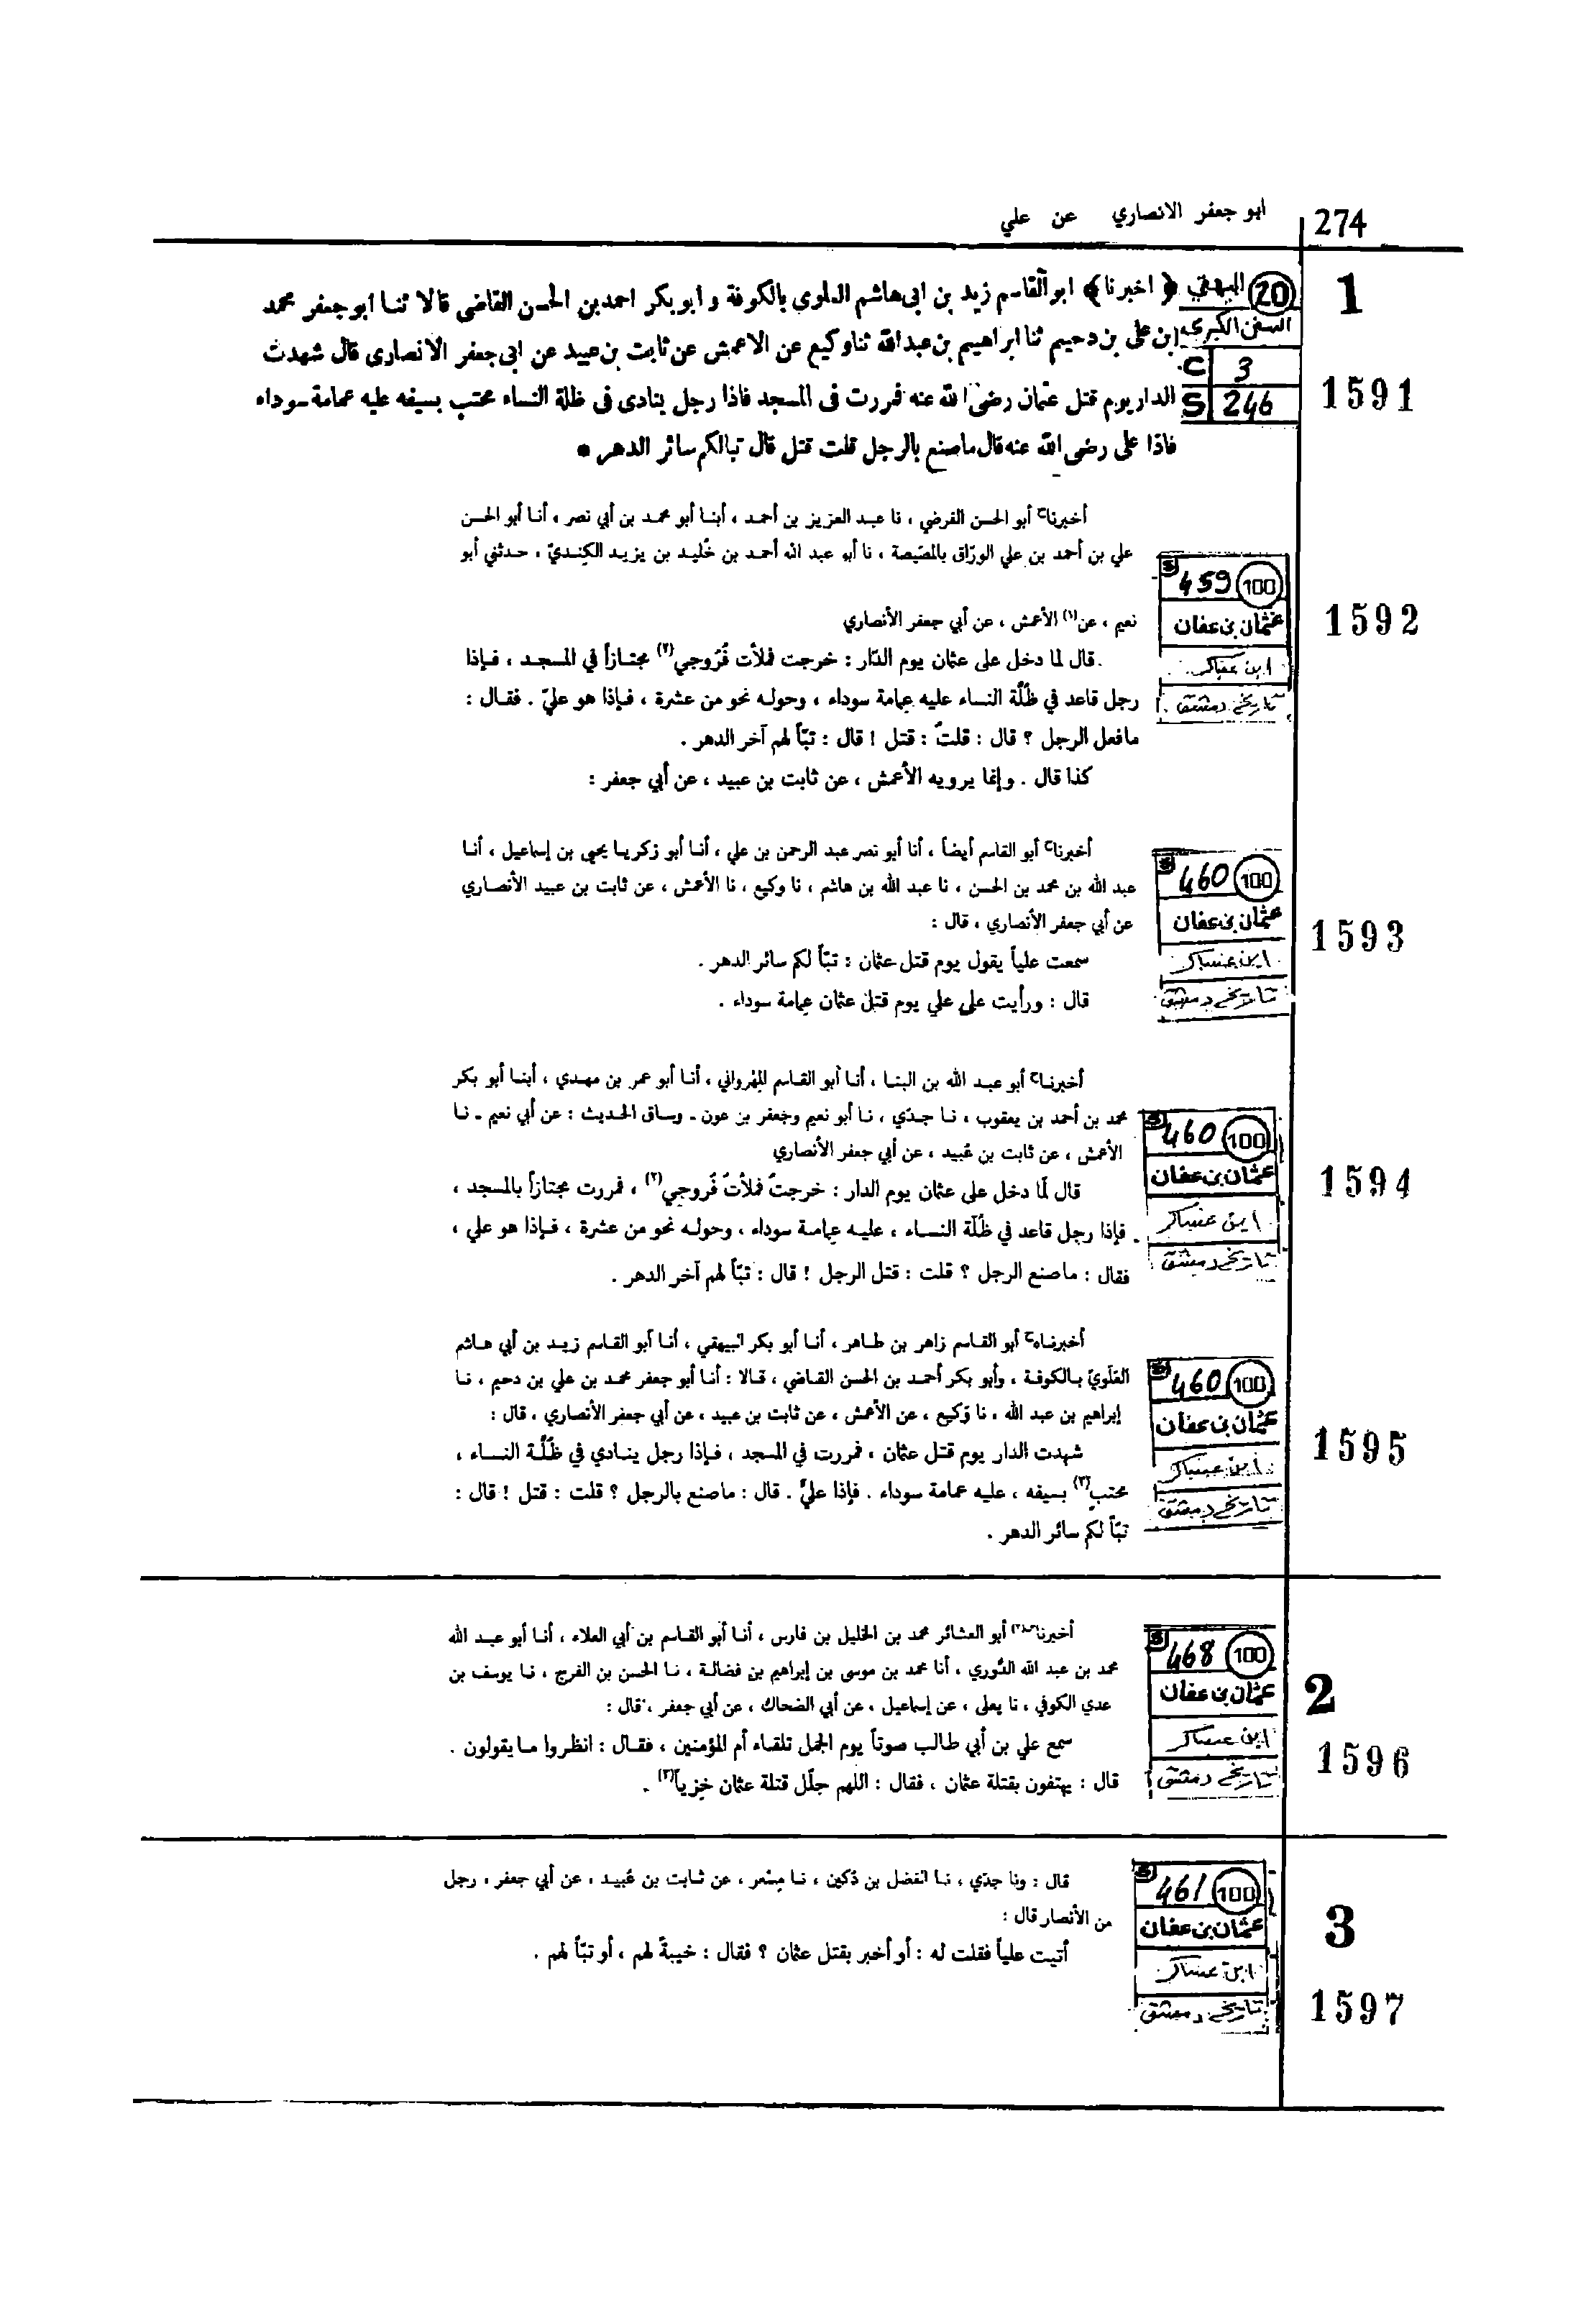 274
ابو جعفر الانصاري عن علي
1
20 البيهقي
السنن الكبرى
C 3
S 246
1591
﴿ اخبرنا ﴾ ابو القاسم زيد بن ابى هاشم العلوى بالكوفة و ابو بكر احمد بن الحسن القاضى قالا ثنا ابو جعفر محمد
ابن على بن دحيم ثنا ابراهيم بن عبد الله ثنا وكيع عن الاعمش عن ثابت بن عبيد عن ابى جعفر الانصارى قال شهدت
الدار يوم قتل عثمان رضى الله عنه فمررت فى المسجد فاذا رجل ينادى فى ظلة النساء محتب بسيفه عليه عمامة سوداء
فاذا على رضى الله عنه قال ما صنع بالرجل قلت قتل قال تبالكم سائر الدهر •
S 459 100
عثمان بن عفان
ابن عساكر
تاريخ دمشق
1592
أخبرنا أبو الحسن الفرضي ، نا عبد العزيز بن أحمد ، أبنا أبو محمد بن أبي نصر ، أنا أبو الحسن
علي بن أحمد بن علي الورّاق بالمصّيصة ، نا أبو عبد الله أحمد بن خُليد بن يزيد الكِنديّ ، حدثني أبو
نعيم ، عن(١) الأعمش ، عن أبي جعفر الأنصاري
قال لما دخل على عثمان يوم الدّار : خرجت فملأت فُرُوجي(٢) مجتازاً في المسجد ، فإذا
رجل قاعد في ظُلّة النساء عليه عِمامة سوداء ، وحوله نحو من عشرة ، فإذا هو عليّ . فقال :
مافعل الرجل ؟ قال : قلتُ : قتل ! قال : تبّاً لهم آخر الدهر .
كذا قال . وإنما يرويه الأعمش ، عن ثابت بن عبيد ، عن أبي جعفر :
S 460 100
عثمان بن عفان
ابن عساكر
تاريخ دمشق
1593
أخبرنا أبو القاسم أيضاً ، أنا أبو نصر عبد الرحمن بن علي ، أنا أبو زكريا يحيى بن إسماعيل ، أنا
عبد الله بن محمد بن الحسن ، نا عبد الله بن هاشم ، نا وكيع ، نا الأعمش ، عن ثابت بن عبيد الأنصاري
عن أبي جعفر الأنصاري ، قال :
سمعت علياً يقول يوم قتل عثمان : تبّاً لكم سائر الدهر .
قال : ورأيت على علي يوم قتل عثمان عِمامة سوداء .
S 460 100
عثمان بن عفان
ابن عساكر
تاريخ دمشق
1594
أخبرنا أبو عبد الله بن البنا ، أنا أبو القاسم المِهْرواني ، أنا أبو عمر بن مهدي ، أبنا أبو بكر
محمد بن أحمد بن يعقوب ، نا جدّي ، نا أبو نعيم وجعفر بن عون ـ وساق الحديث : عن أبي نعيم ـ نا
الأعمش ، عن ثابت بن عُبيد ، عن أبي جعفر الأنصاري
قال لمّا دخل على عثمان يوم الدار : خرجتُ فملأتُ فُروجي(٢) ، فمررت مجتازاً بالمسجد ،
فإذا رجل قاعد في ظُلّة النساء ، عليه عمامة سوداء ، وحوله نحو من عشرة ، فإذا هو علي ،
فقال : ماصنع الرجل ؟ قلت : قتل الرجل ! قال : تبّاً لهم آخر الدهر .
S 460 100
عثمان بن عفان
ابن عساكر
تاريخ دمشق
1595
أخبرناه أبو القاسم زاهر بن طاهر ، أنا أبو بكر البيهقي ، أنا أبو القاسم زيد بن أبي هاشم
العَلَويّ بالكوفة ، وأبو بكر أحمد بن الحسن القاضي ، قالا : أنا أبو جعفر محمد بن علي بن دحيم ، نا
إبراهيم بن عبد الله ، نا وَكيع ، عن الأعمش ، عن ثابت بن عبيد ، عن أبي جعفر الأنصاري ، قال :
شهدت الدار يوم قتل عثمان ، فمررت في المسجد ، فإذا رجل ينادي في ظُلّة النساء ،
محتبٍ(٣) بسيفه ، عليه عمامة سوداء . فإذا عليٌّ . قال : ماصنع بالرجل ؟ قلت : قتل ! قال :
تبّاً لكم سائر الدهر .
S 468 100
عثمان بن عفان
ابن عساكر
تاريخ دمشق
2
1596
أخبرنا أبو العشائر محمد بن الخليل بن فارس ، أنا أبو القاسم بن أبي العلاء ، أنا أبو عبد الله
محمد بن عبد الله الدُّوري ، أنا محمد بن موسى بن إبراهيم بن فضالة ، نا الحسن بن الفرج ، نا يوسف بن
عدي الكوفي ، نا يعلى ، عن إسماعيل ، عن أبي الضحاك ، عن أبي جعفر ، قال :
سمع علي بن أبي طالب صوتاً يوم الجمل تلقاء أم المؤمنين ، فقال : انظروا مايقولون .
قال : يهتفون بقتلة عثمان ، فقال : اللهم جلّل قتلة عثمان خِزياً(٣) .
S 461 100
عثمان بن عفان
ابن عساكر
تاريخ دمشق
3
1597
قال : ونا جدّي ، نا الفضل بن دُكين ، نا مِسْعر ، عن ثابت بن عُبيد ، عن أبي جعفر ، رجل
من الأنصار قال :
أتيت علياً فقلت له : أو أخبر بقتل عثمان ؟ فقال : خيبةً لهم ، أو تبّاً لهم .